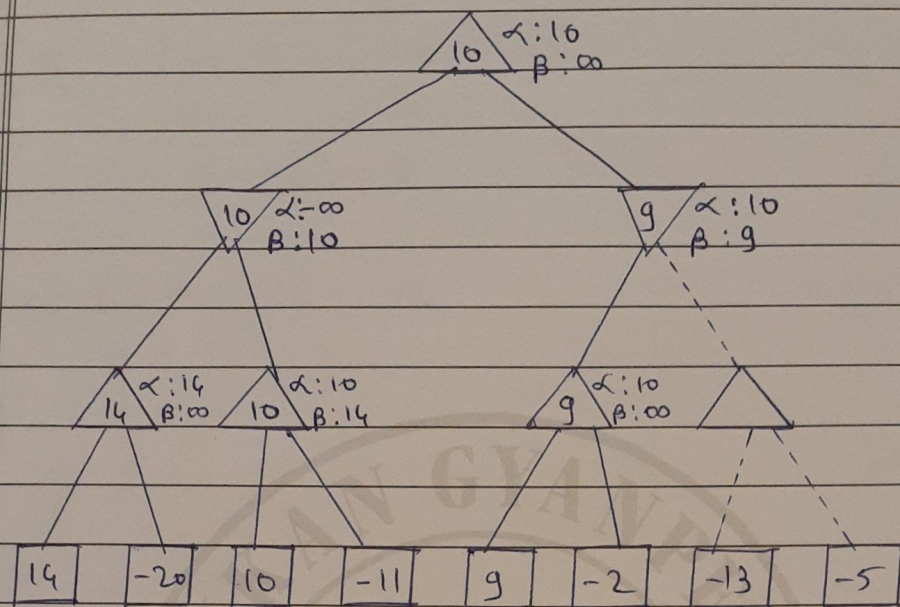 10 α:10
β:∞
10 α:-∞
β:10
9 α:10
β:9
14 α:14
β:∞
10 α:10
β:14
9 α:10
β:∞
14 -20 10 -11 9 -2 -13 -5